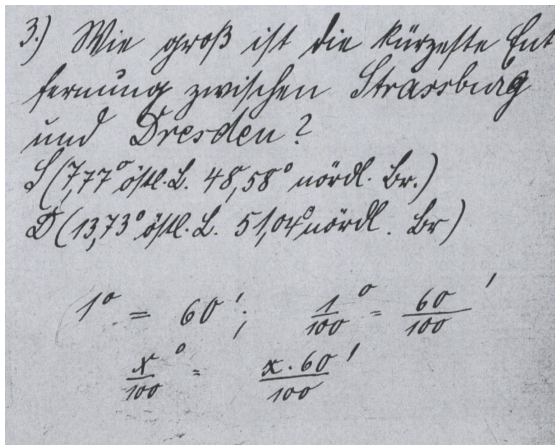 3.) Wie groß ist die kürzeste Ent
fernung zwischen Strassburg
und Dresden?
S (7,77° östl. L. 48,58° nördl. Br.)
D (13,73° östl. L. 51,04° nördl. Br)
1° = 60'; 1/100° = 60/100'
x/100° = x · 60/100'